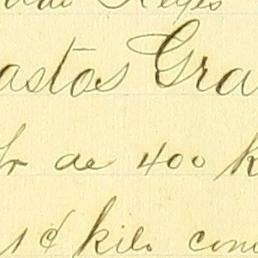 Reyes
astos Gra
de 400 k
1 ¢ kilo com